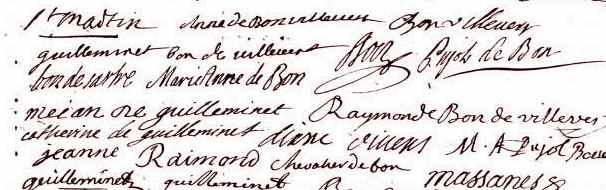 St martin Anne de Bonvillevert Bonvillevert
guilleminet bon de villevert Bon Pujols de Bon
bon de sartre Marie Anne de Bon
mejan de guilleminet Raymonde Bon de villevert
catherine de guilleminet vivens M. A Pujol
jeanne Raimond chevalier de bon massanes
guilleminet guilleminet